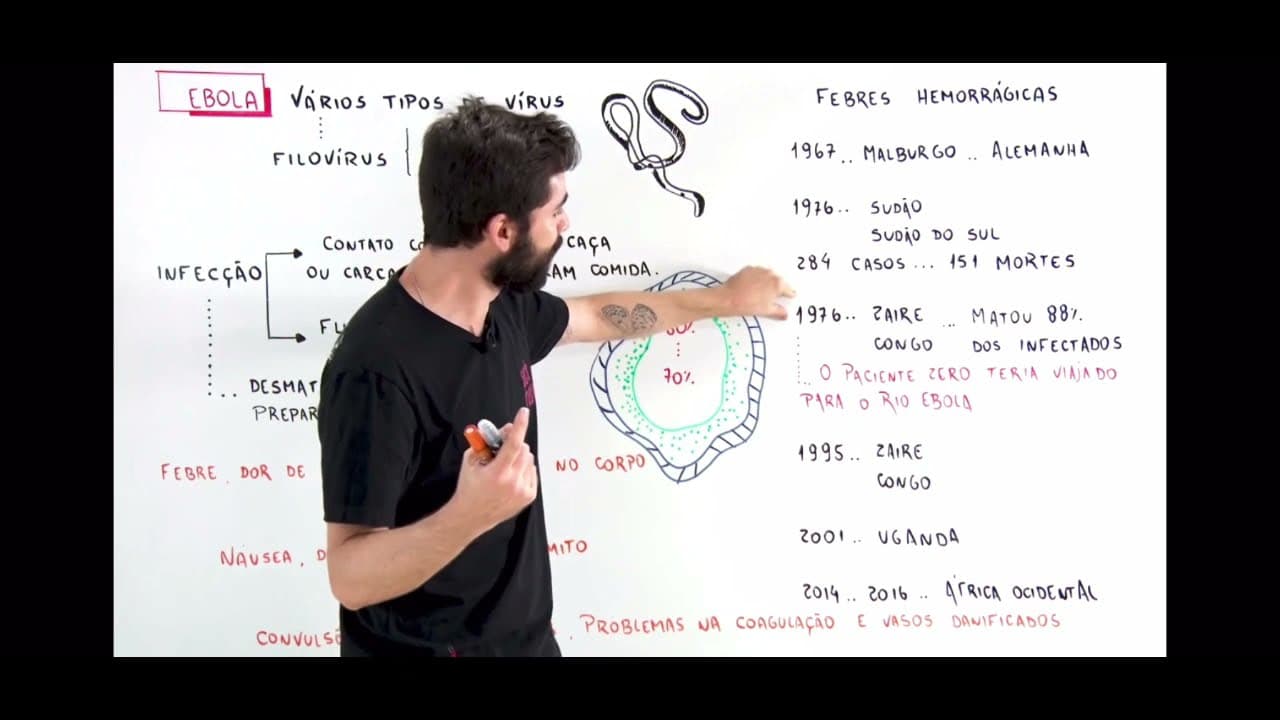 EBOLA VÁRIOS TIPOS VÍRUS
FILOVÍRUS
INFECÇÃO
CONTATO CAÇA
OU COMIDA.
DESMAT
PREPAR
FEBRE, DOR DE NO CORPO
NÁUSEA,
CONVULSÕ PROBLEMAS NA COAGULAÇÃO E VASOS DANIFICADOS
70%
FEBRES HEMORRÁGICAS
1967.. MALBURGO .. ALEMANHA
1976.. SUDÃO
SUDÃO DO SUL
284 CASOS... 151 MORTES
1976.. ZAIRE ... MATOU 88%
CONGO DOS INFECTADOS
.. O PACIENTE ZERO TERIA VIAJADO
PARA O RIO EBOLA
1995.. ZAIRE
CONGO
2001.. UGANDA
2014.. 2016.. ÁFRICA OCIDENTAL